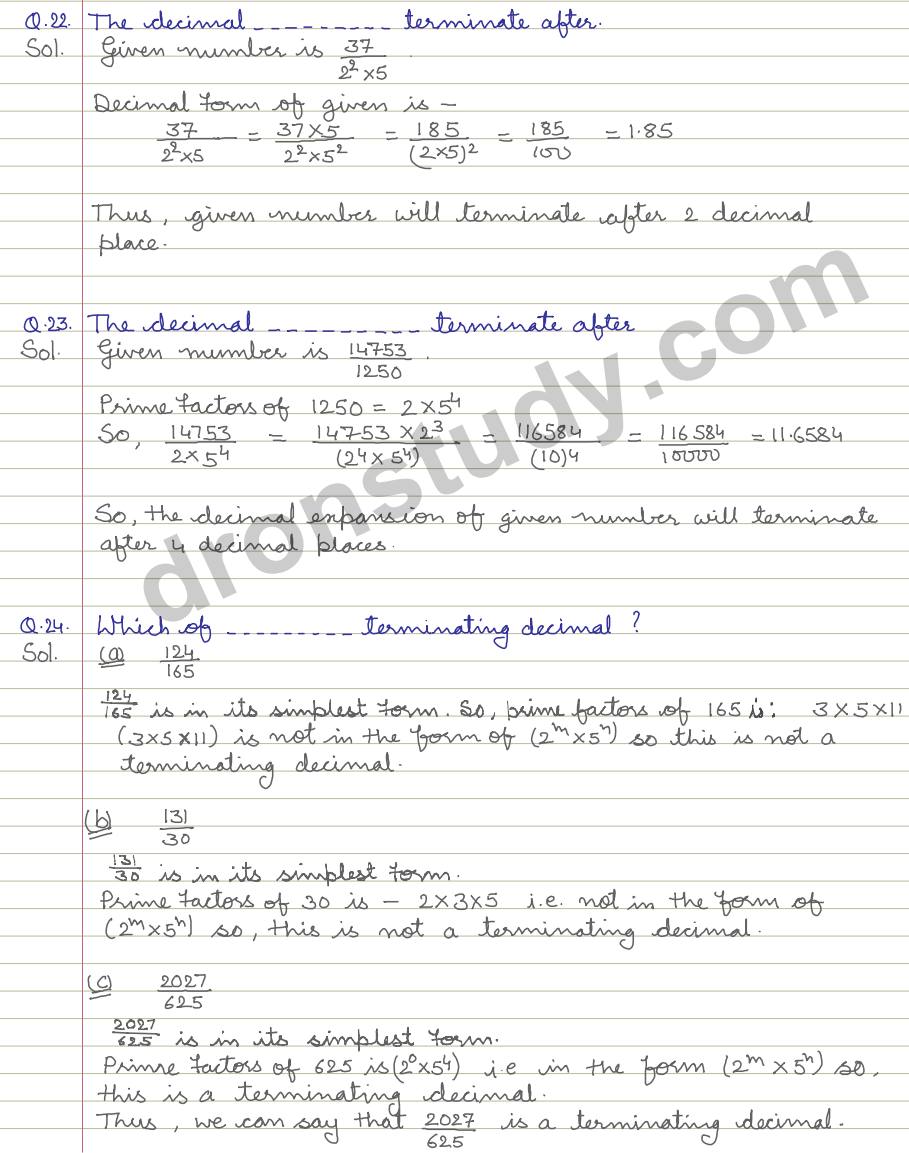 Q.22. The decimal _ _ _ _ _ _ _ _ _ terminate after.
Sol. Given number is 37/2²×5.
Decimal form of given is –
37/2²×5 = 37×5/2²×5² = 185/(2×5)² = 185/100 = 1.85
Thus, given number will terminate after 2 decimal
place.
Q.23. The decimal _ _ _ _ _ _ _ _ _ terminate after
Sol. Given number is 14753/1250.
Prime factors of 1250 = 2×5⁴
So, 14753/2×5⁴ = 14753×2³/(2⁴×5⁴) = 116584/(10)4 = 116584/10000 = 11.6584
So, the decimal expansion of given number will terminate
after 4 decimal places.
Q.24. Which of _ _ _ _ _ _ _ _ _ terminating decimal ?
Sol. (a) 124/165
124/165 is in its simplest form. So, prime factors of 165 is: 3×5×11
(3×5×11) is not in the form of (2ᵐ×5ⁿ) so this is not a
terminating decimal.
(b) 131/30
131/30 is in its simplest form.
Prime factors of 30 is – 2×3×5 i.e. not in the form of
(2ᵐ×5ⁿ) so, this is not a terminating decimal.
(c) 2027/625
2027/625 is in its simplest form.
Prime factors of 625 is (2⁰×5⁴) i.e in the form (2ᵐ×5ⁿ) so,
this is a terminating decimal.
Thus, we can say that 2027/625 is a terminating decimal.
dronstudy.com